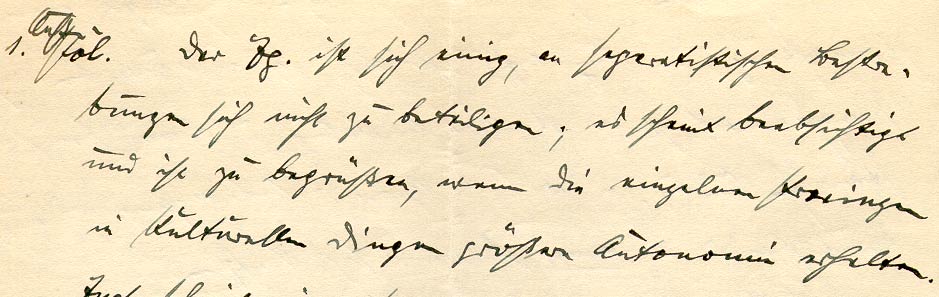 1. Der Zg. ist sich einig, an separatistischen Bestre-
bungen sich nicht zu beteiligen; es scheint beabsichtigt
und ist zu begrüßen, wenn die einzelnen Provinzen
in kulturellen Dingen größere Autonomie erhalten.